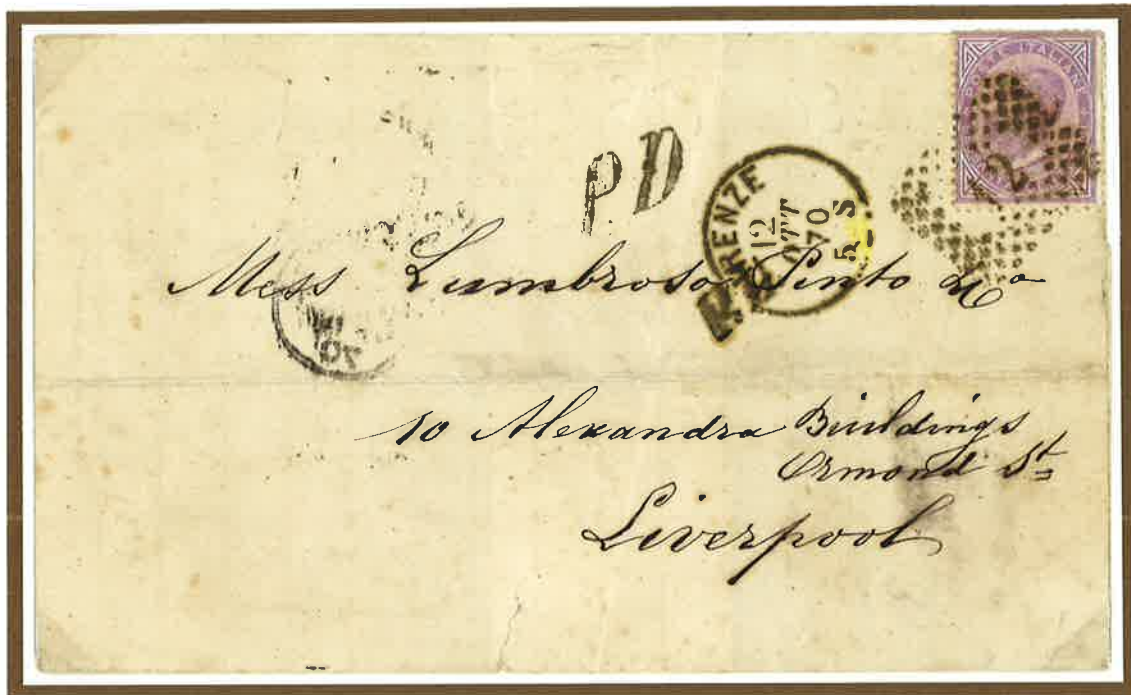 POSTE ITALIANE
2
PD
FIRENZE
12
OTT
70
5 S
Mess Lumbroso Pinto & Co
70
10 Alexandra Buildings
Ormond St
Liverpool